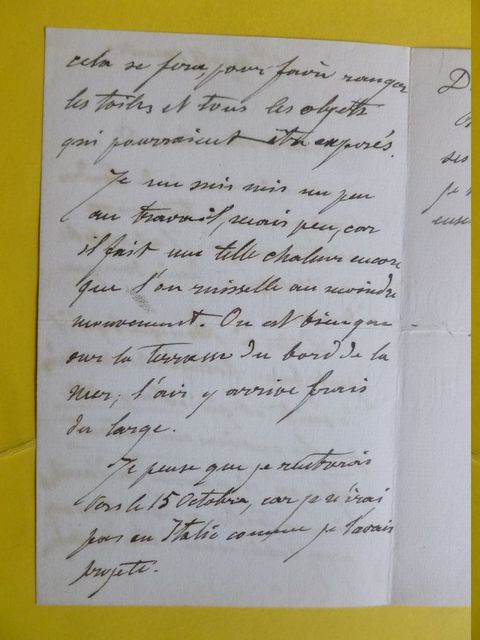 cela se fera, pour faire ranger
les toiles et tous les objets
qui pourraient être exposés.
Je me suis mis un peu
au travail, mais peu, car
il fait une telle chaleur encore
que l'on ruisselle au moindre
mouvement. On est bien que
sur la terrasse du bord de la
mer, l'air y arrive frais
du large.
Je pense que je rentrerais
vers le 15 octobre, car je n'irai
pas en Italie comme je l'avais
projeté.
D
ses
je